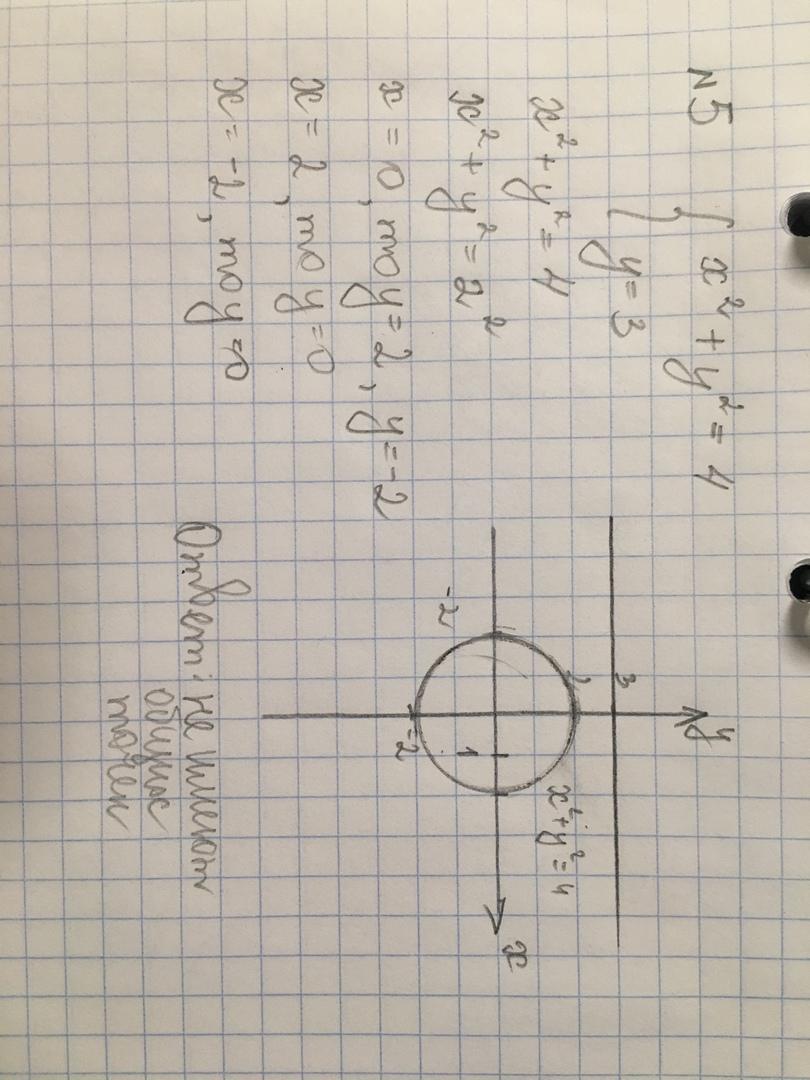 N5
{ x² + y² = 4
y = 3
x² + y² = 4
x² + y² = 2²
x = 0, то y = 2, y = -2
x = 2, то y = 0
x = -2, то y = 0
y
3
2
x² + y² = 4
-2
1
x
-2
Ответ: не имеют
общих
точек